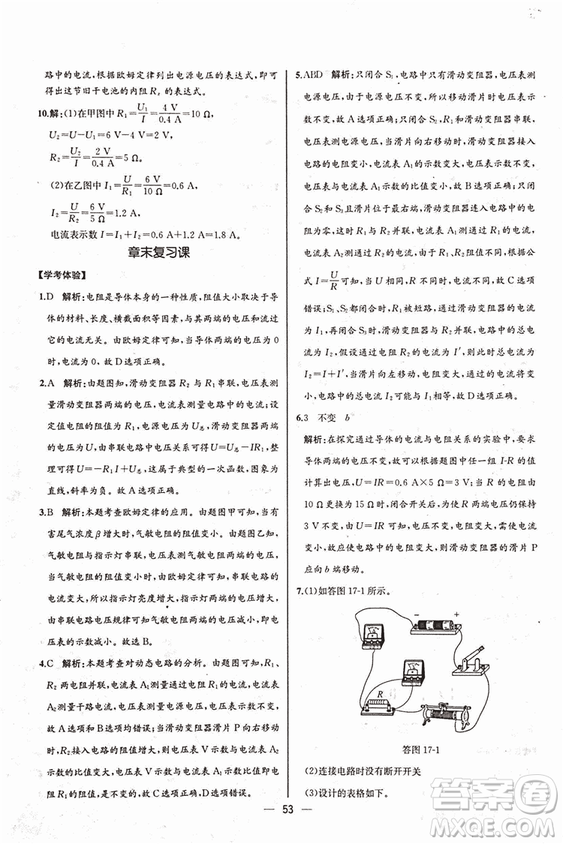 路中的电流,根据欧姆定律列出电源电压的表达式,即可得
出这节旧干电池的内阻 Rₓ 的表达式。
10.解:(1)在甲图中 R₁=U₁/I=4 V/0.4 A=10 Ω
U₂=U-U₁=6 V-4 V=2 V
R₂=U₂/I=2 V/0.4 A=5 Ω
(2)在乙图中 I₁=U/R₁=6 V/10 Ω=0.6 A,
I₂=U/R₂=6 V/5 Ω=1.2 A,
电流表示数 I=I₁+I₂=0.6 A+1.2 A=1.8 A
章末复习课
【学考体验】
1.D 解析:电阻是导体本身的一种性质,阻值大小取决于导
体的材料、长度、横截面积等因素,与两端的电压和流过
它的电流无关。由欧姆定律可知,当导体两端的电压为0
时,电流为0。故 D 选项正确。
2.A 解析:由题图知,滑动变阻器与 R₁ 串联,电压表测
量滑动变阻器两端的电压,电流表测量电路中的电流。
设定值电阻的阻值为 R₁,电源两端的电压为 U总,电压
表的电压为 U,由串联电路电压规律可知,U=U总-IR₁,
整理得 U=-R₁I+U总,由此函数关系可知,图象为一条
直线,斜率为负。故 A 选项正确。
3.B 解析:本题考查欧姆定律的应用。由题图甲知,当有
害尾气浓度 β 增大时,气敏电阻的阻值变小。由题图乙知,
气敏电阻与指示灯串联,电压表测气敏电阻两端的电压,
当气敏电阻的阻值变小时,电路的总电阻变小,电路中的
电流变大,所以指示灯亮度增大。指示灯两端的电压变
大,由于电源电压不变,则气敏电阻两端的电压减小,电压
表的示数减小。故选 B。
4.C 解析:本题考查对动态电路的分析。由题图可知,R₁、
R₂ 两电阻并联,电压表测量电源电压,其示数不变,电流表
A₂ 测量干路电流,电流表 A₁ 测量 R₁ 支路的电流,其示数不
变,故 A 选项和 B 选项均错误;当滑动变阻器滑片 P 向右移
动时,R₂ 接入电路的阻值增大,则电路中的总电阻增大,总电
流变小,电流表 A₂ 示数变小,所以电压表 V 示数与电流表
A₂ 示数的比值变大,故 C 选项正确;电压表 V 示数与电流表
A₁ 示数的比值即电阻 R₁ 的阻值,不变。故 D 选项错误。
5.ABD 解析:只闭合 S₃,电路中只有滑动变阻器,电压表测
电源电压,电源电压不变,所以移动滑片 P,电压表的示
数不变。故 A 选项正确;只闭合 S₁,R₁ 与滑动变阻器串联,
电压表测电源电压,滑片 P 向右移动时,滑动变阻器接入
电路的电阻变小,电流表 A₁ 的示数变大,电压表示数不
变,则电压表 V 与电流表 A₁ 示数的比值变小。故 B 选
项正确;只闭合 S₂,R₂ 与滑动变阻器并联,滑片 P 移到
最左端时,滑动变阻器接入电路的电阻为零,会发生短路。
只闭合 S₂ 和 S₃,滑片 P 在最右端时,滑动变阻器连入电路
中的电阻不变,电源电压不变,
则 I=U/R 可知,电流表 A₁ 的示数不变,故 C 选项
错误;只闭合 S₂ 与 S₃ 时,R₁ 被短路,通过滑动变阻器的电
流为 I₁,R₂ 与滑动变阻器并联,此时电路中的总电
流为 I,通过滑动变阻器和电阻 R₂ 的电流为 I′,故
I₂=I+I′,所以 I₂ 大于 I₁,当滑片向左移动时,电路中的总电
流变大。故 D 选项正确。
6.3 不变 b
解析:在探究通过导体的电流与电阻关系的实验中,要求
导体两端的电压不变,故可以根据题图中任一组 I-R 的值
计算出电压,即 U=IR=0.6 A×5 Ω=3 V。电阻由 5 Ω 变为
10 Ω 时,闭合开关后,为了使电阻两端的电压仍保持
3 V 不变,由 U=IR 可知,电阻变大,需使电流
变小,故应增大电路中的总电阻,所以滑动变阻器的滑片 P
应向 b 端移动。
7.(1)如答图 17-1 所示。
答图 17-1
(2)连接电路时没有断开开关
(3)设计的表格如下。
53
答案圈
MXQE.COM